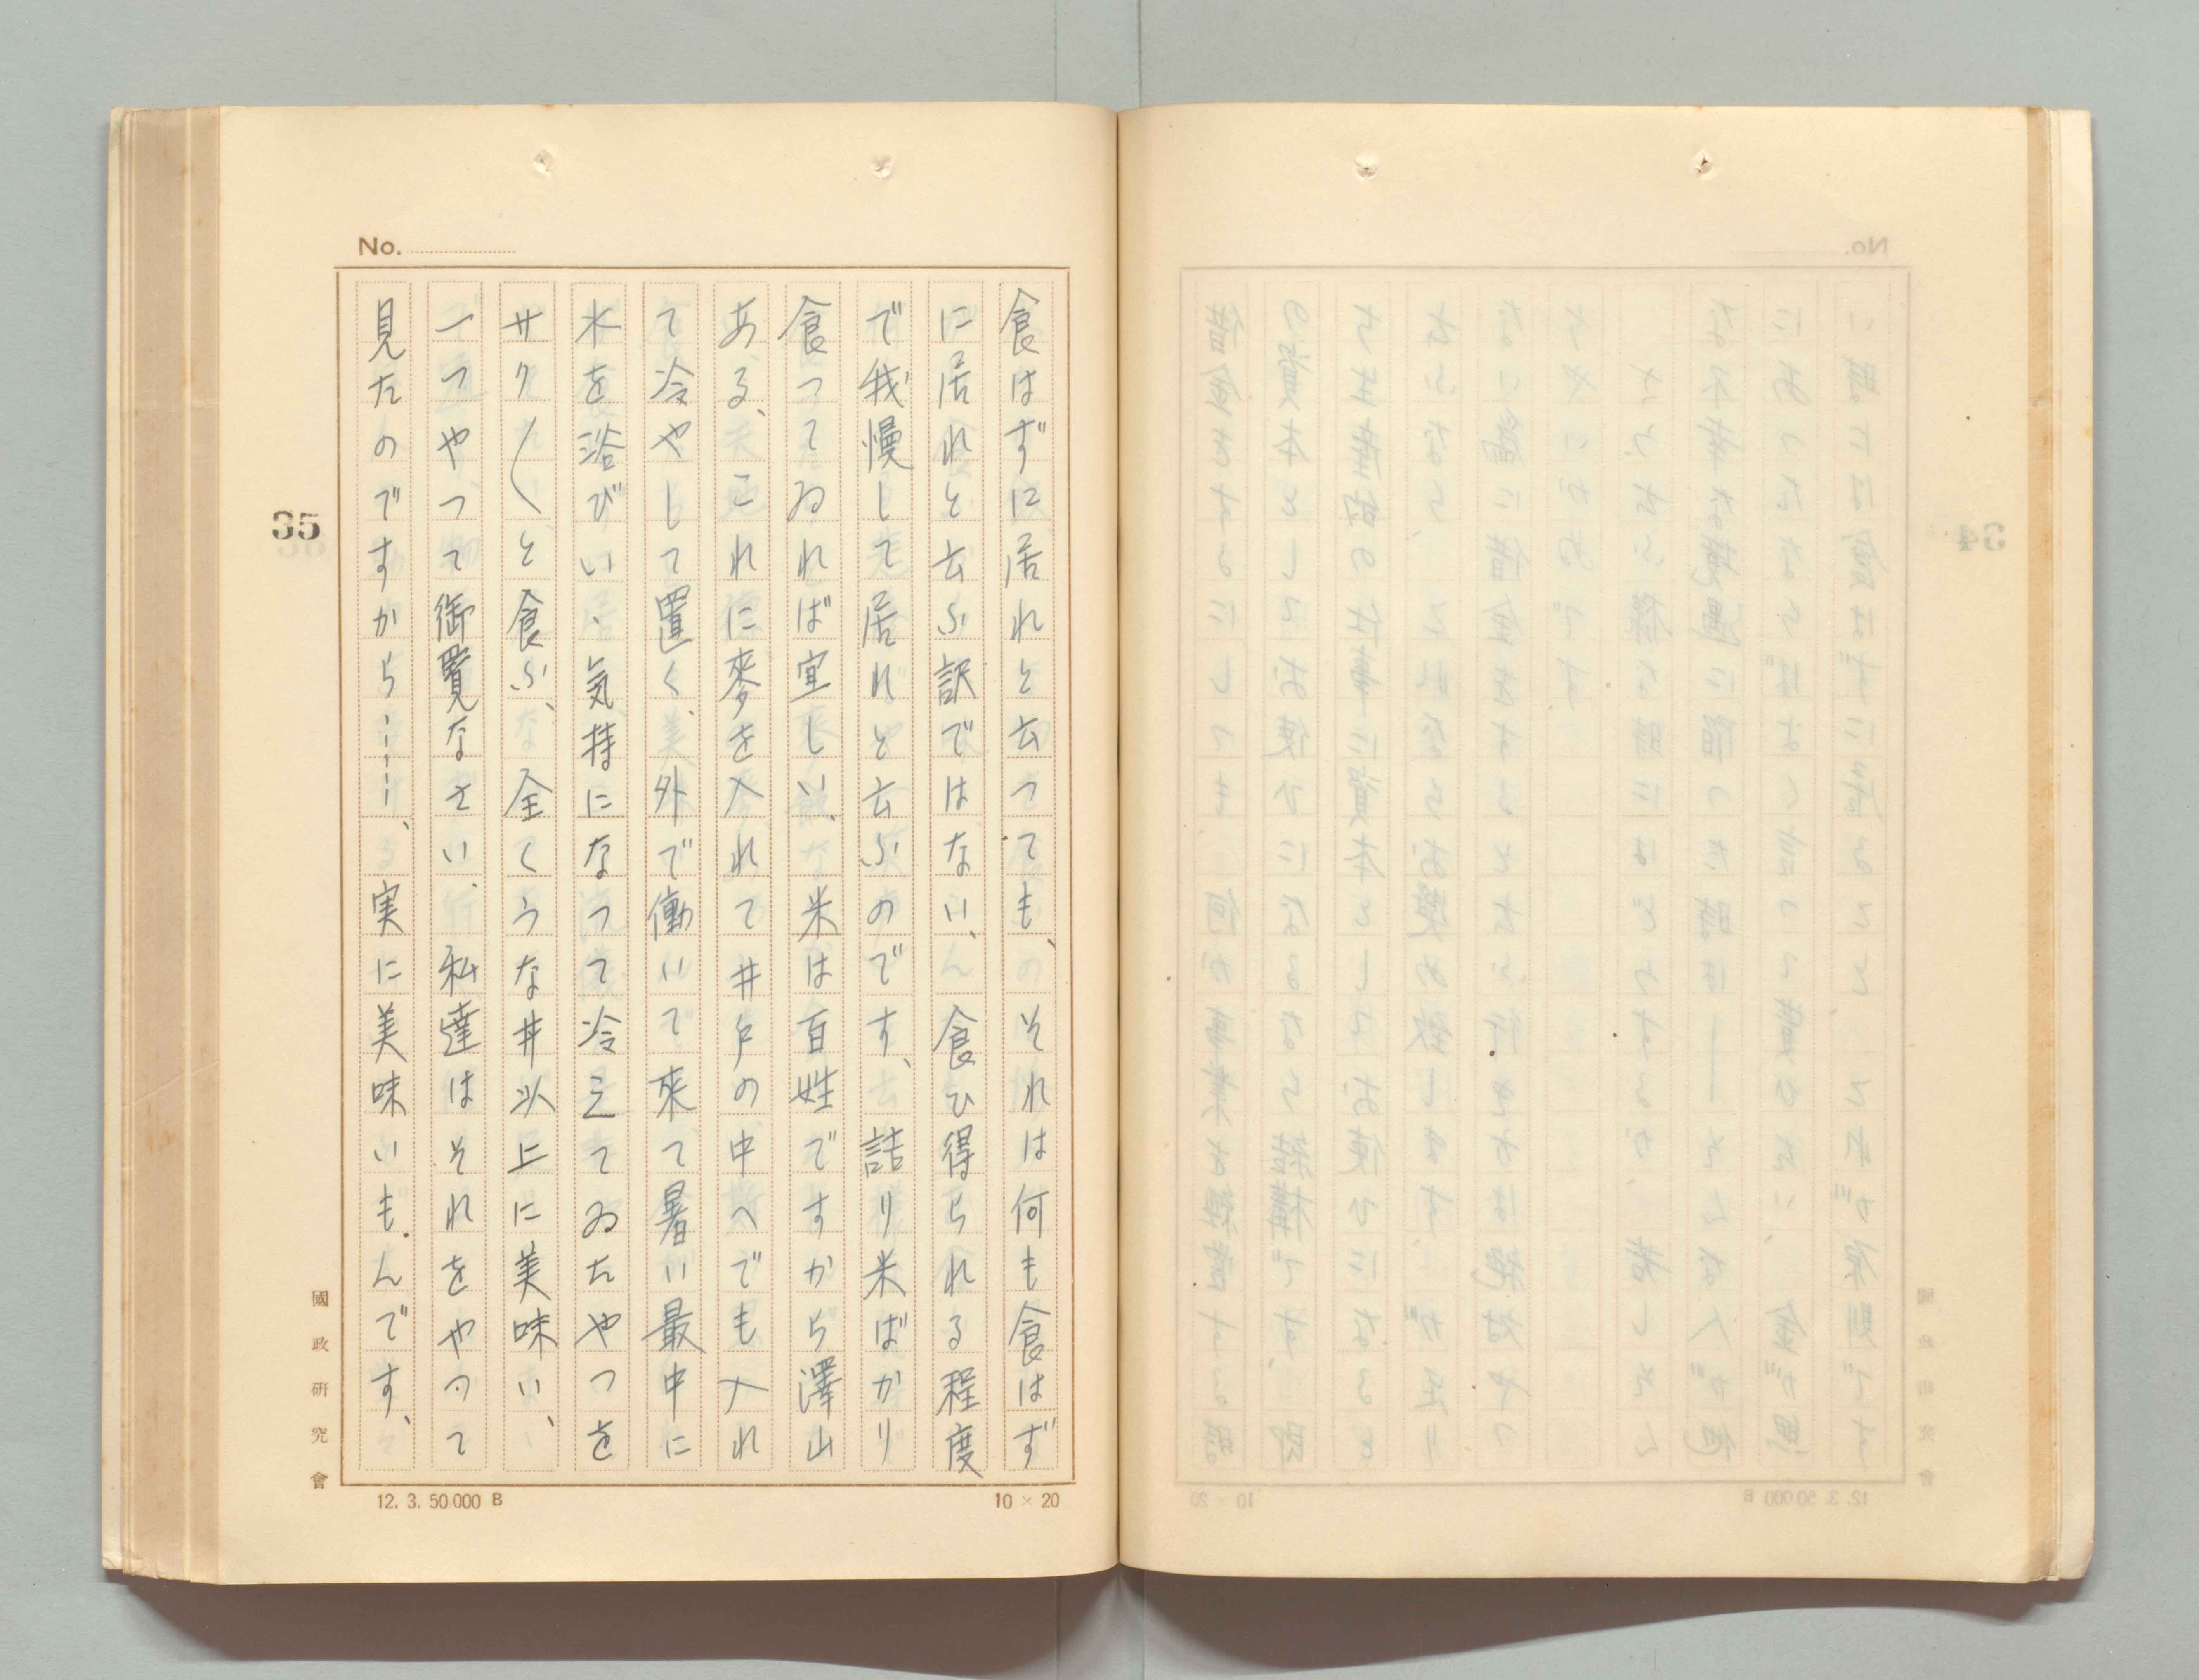 No.
食はずに居れと云つても、それは何も食はず
に居れと云ふ訳ではない、食ひ得られる程度
で我慢して居れと云ふのです、詰り米ばかり
食つてゐれば宜しい、米は百姓ですから澤山
ある、これに麥を入れて井戸の中へでも入れ
て冷やして置く、外で働いて來て暑い最中に
水を浴びいゝ気持になつて冷えてゐたやつを
サク〱と食ふ、全くうな丼以上に美味い、
一つやつて御覧なさい、私達はそれをやつて
見たのですから……、実に美味いもんです、
35
國政研究會
12. 3. 50.000 B
10 × 20